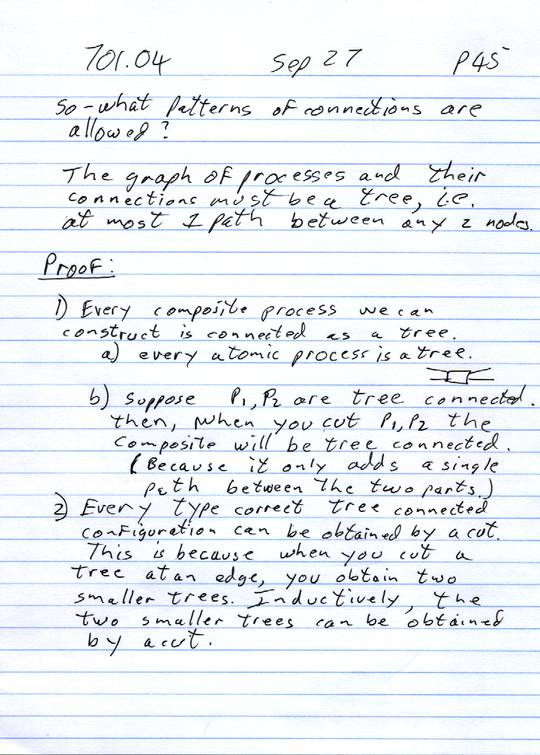 701.04 Sep 27 P45
So-what patterns of connections are
allowed?
The graph of processes and their
connections must be a tree, i.e.
at most 1 path between any 2 nodes.
Proof:
1) Every composite process we can
construct is connected as a tree.
a) every atomic process is a tree.
b) Suppose P1, P2 are tree connected.
then, when you cut P1, P2 the
composite will be tree connected.
(Because it only adds a single
path between the two parts.)
2) Every type correct tree connected
configuration can be obtained by a cut.
This is because when you cut a
tree at an edge, you obtain two
smaller trees. Inductively, the
two smaller trees can be obtained
by a cut.